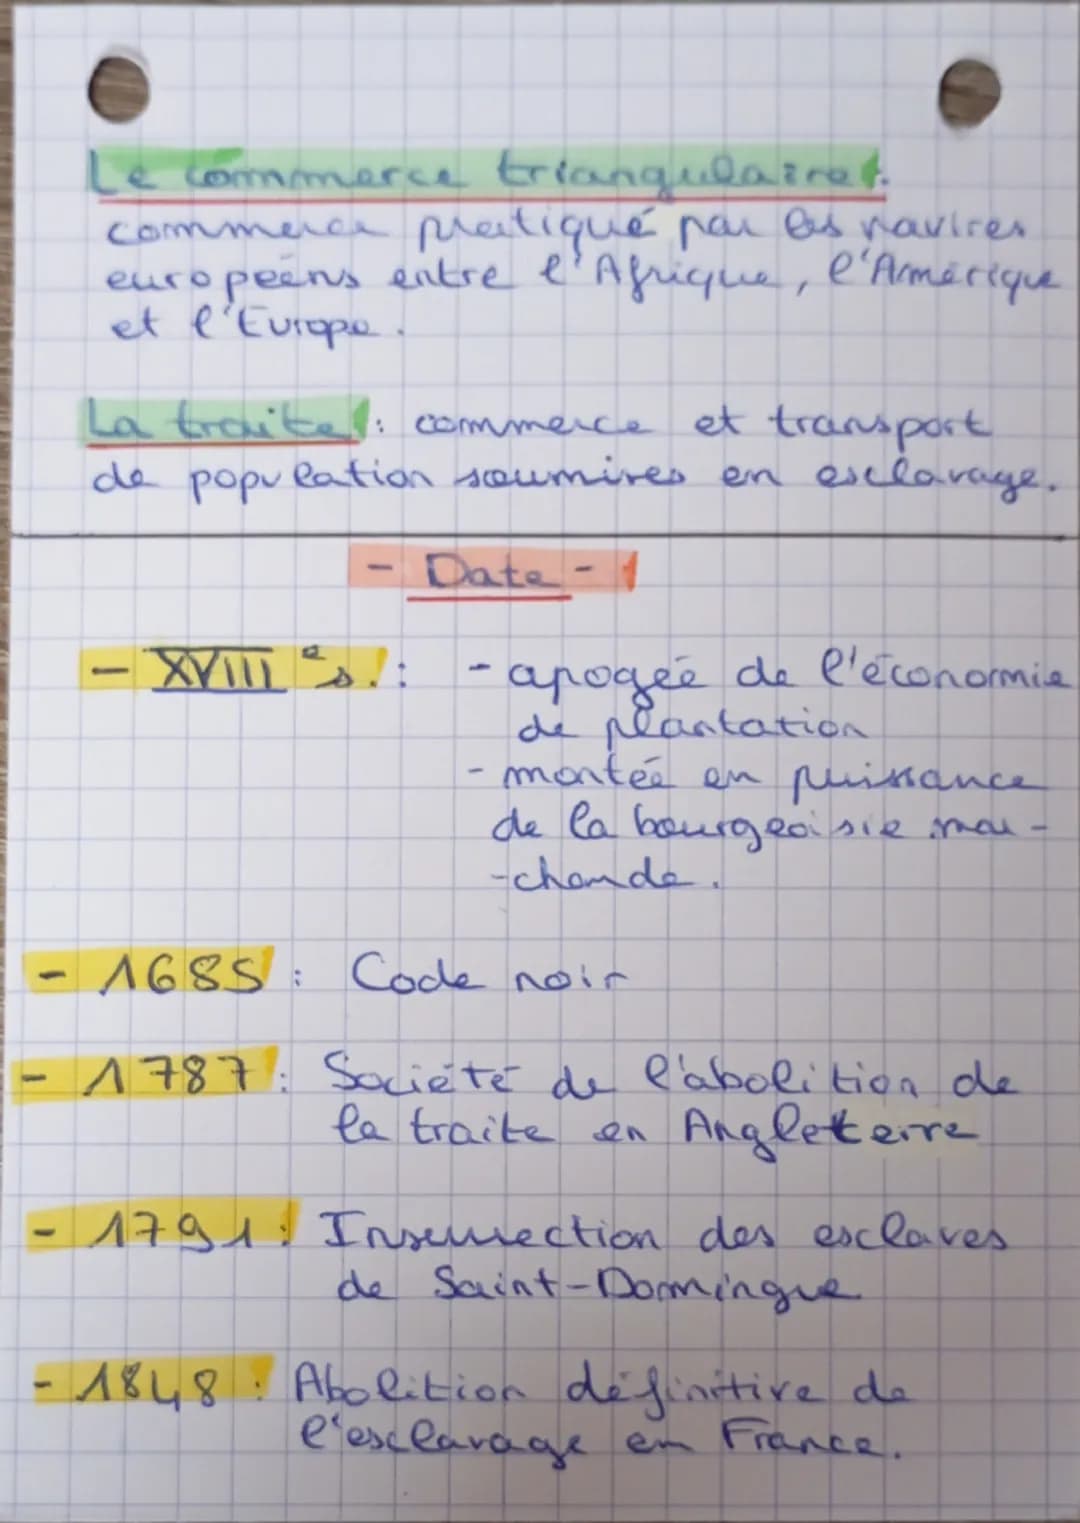 Le commerce triangulaire:
commerce pratiqué par les navires
européens entre l'Afrique, l'Amérique
et l'Europe.
La traite: commerce et transport
de population soumises en esclavage.
- Date -
- XVIII e s. : - apogée de l'économie
de plantation
- montée en puissance
de la bourgeoisie mar-
-chande.
- 1685 : Code noir
- 1787 : Société de l'abolition de
la traite en Angleterre
- 1791 : Insurrection des esclaves
de Saint-Domingue
- 1848 : Abolition définitive de
l'esclavage en France.